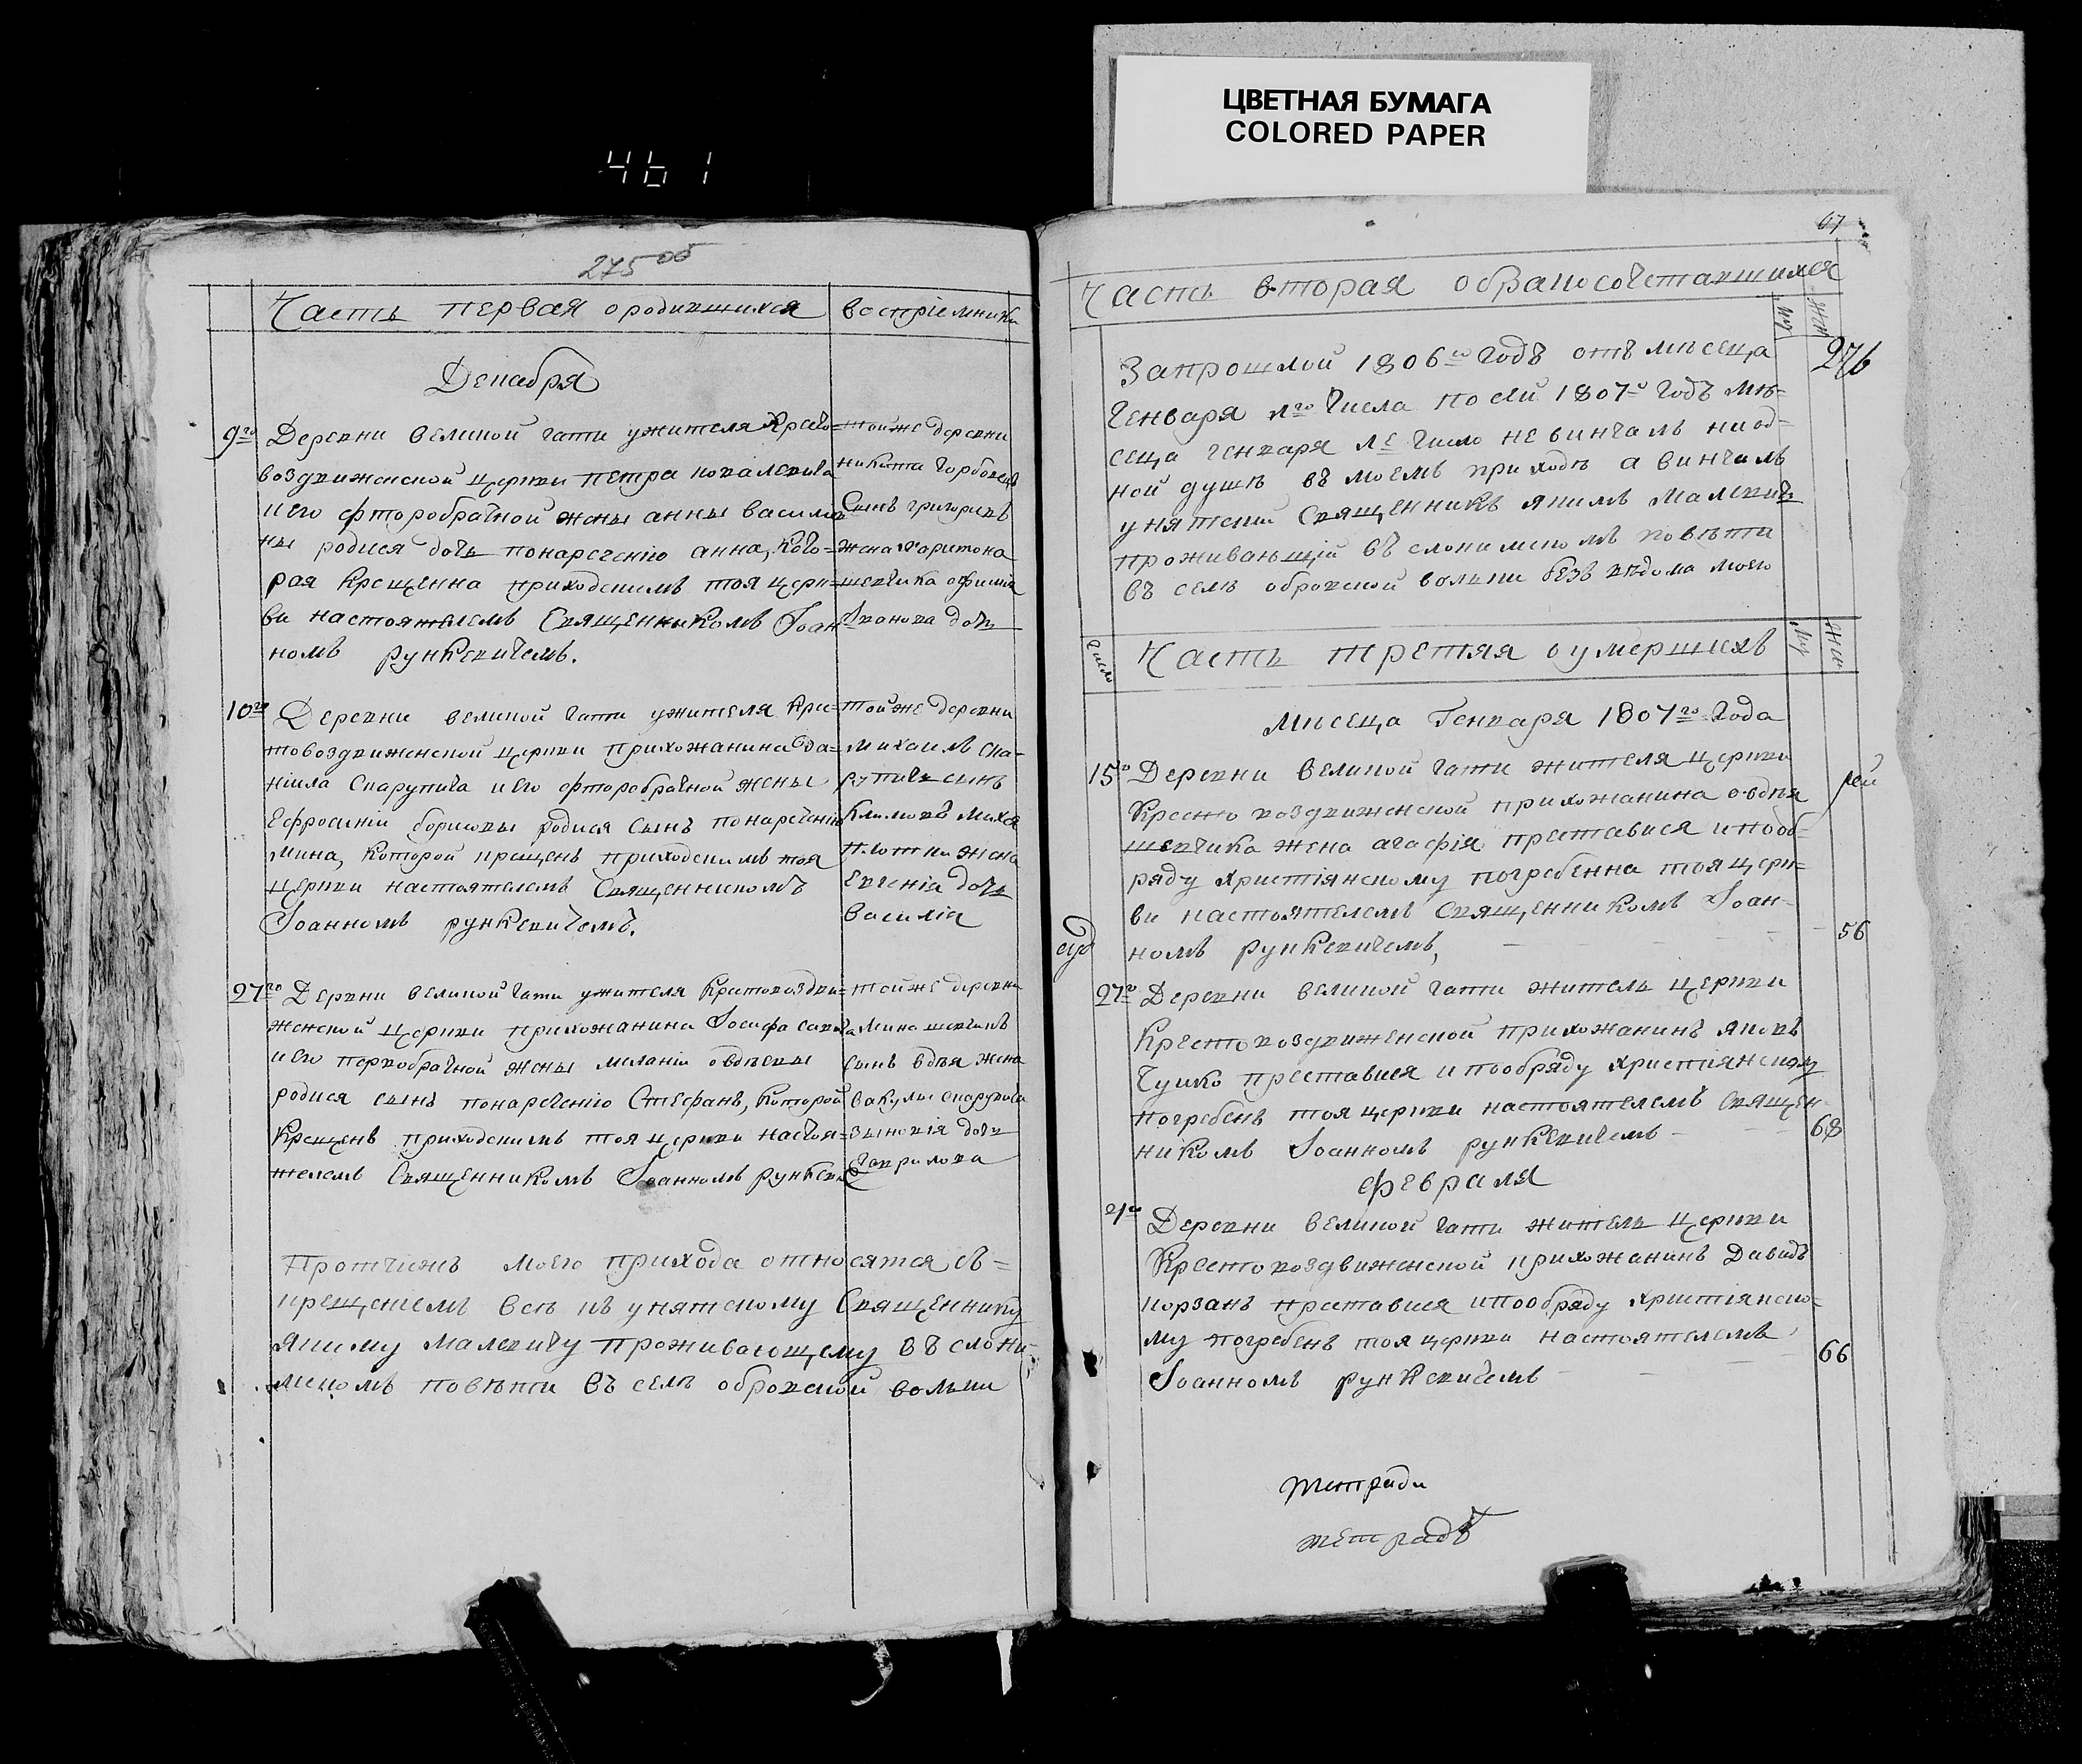 ЦВЕТНАЯ БУМАГА
COLORED PAPER
461
275 об
Часть первая ородившихся
воспріемники
Декабря
9го Деревни великой гати ужителя Крето-
воздвиженской церкви петра ковалевича
и его фторобрачной жены анны василев
ны родися дочь понаречению анна, кото-
рая крещенна приходскимъ тоя церк-
ви настоятелемъ Священникомъ Іоан
номъ рункевичемъ.
тойже деревни
никита горбачевъ
Сынъ григориевъ
жена харитона
шевчика
Иванова дочь
10го Деревни великой гати ужителя Кре-
товоздвиженской церкви прихожанина да-
ніила Скарупича и его фторобрачной жены
Ефросиніи борисовы родися Сынъ понаречению
Мина, которой крещенъ приходскимъ тоя
церкви настоятелемъ Священникомъ
Іоанномъ рункевичемъ.
тойже деревни
михаилъ ска-
рупичь сынъ
Климовъ
жена
Евгенія дочь
василія
27го Деревни великой гати ужителя Крстовоздви-
женской церкви прихожанина Іосифа
и его первобрачной жены меланіи овдѣевы
родися сынъ понаречению Стефанъ, которой
Крещенъ приходскимъ тоя церкви настоя-
телемъ Священникомъ Іоанномъ рункеви
тойже деревни
Мина шевчикъ
сынъ жена
вакулы скарупича
дочь
Гаврилова
Протчижъ моего прихода относятся съ-
крещениемъ всѣ къ унятскому Священнику
якиму малевичу проживающему въ слони-
мскомъ повѣти въ селѣ обровской вольки
67
Часть вторая обракосочетавшихся
му
жен
276
Запрошлой 1806го годъ отъ мѣсеца
Генваря 1го числа по сей 1807й годъ мѣ-
сеца генваря 1е число не винчалъ ниод-
ной душѣ въ моемъ приходѣ а винчалъ
унятский Священникъ якимъ Малевичъ
проживающій въ слонимскомъ повѣти
въ селѣ обровской вольки безъ вѣдома моего
число
Часть третяя оумершихъ
му
жен
Мисеца Генваря 1807го года
15го Деревни великой гати жителя церкви
Кресто воздвиженской прихожанина овдѣя
шевчика жена агафія преставися и пооб-
ряду христіянскому погребенна тоя церк-
ви настоятелемъ Священникомъ Іоан-
номъ рункевичемъ,
56
27го Деревни великой гати житель церкви
Крестовоздвиженской прихожанинъ яковъ
Чушко преставися и пообряду христіянскому
погребенъ тоя церкви настоятелемъ священ-
никомъ Іоанномъ рункевичемъ
68
февраля
21го Деревни великой гати житель церкви
Крестовоздвиженской прихожанинъ Давидъ
корзанъ преставися и пообряду христіянско-
му погребенъ тоя церкви настоятелемъ
Іоанномъ рункевичемъ
66
тетради
тетрадъ